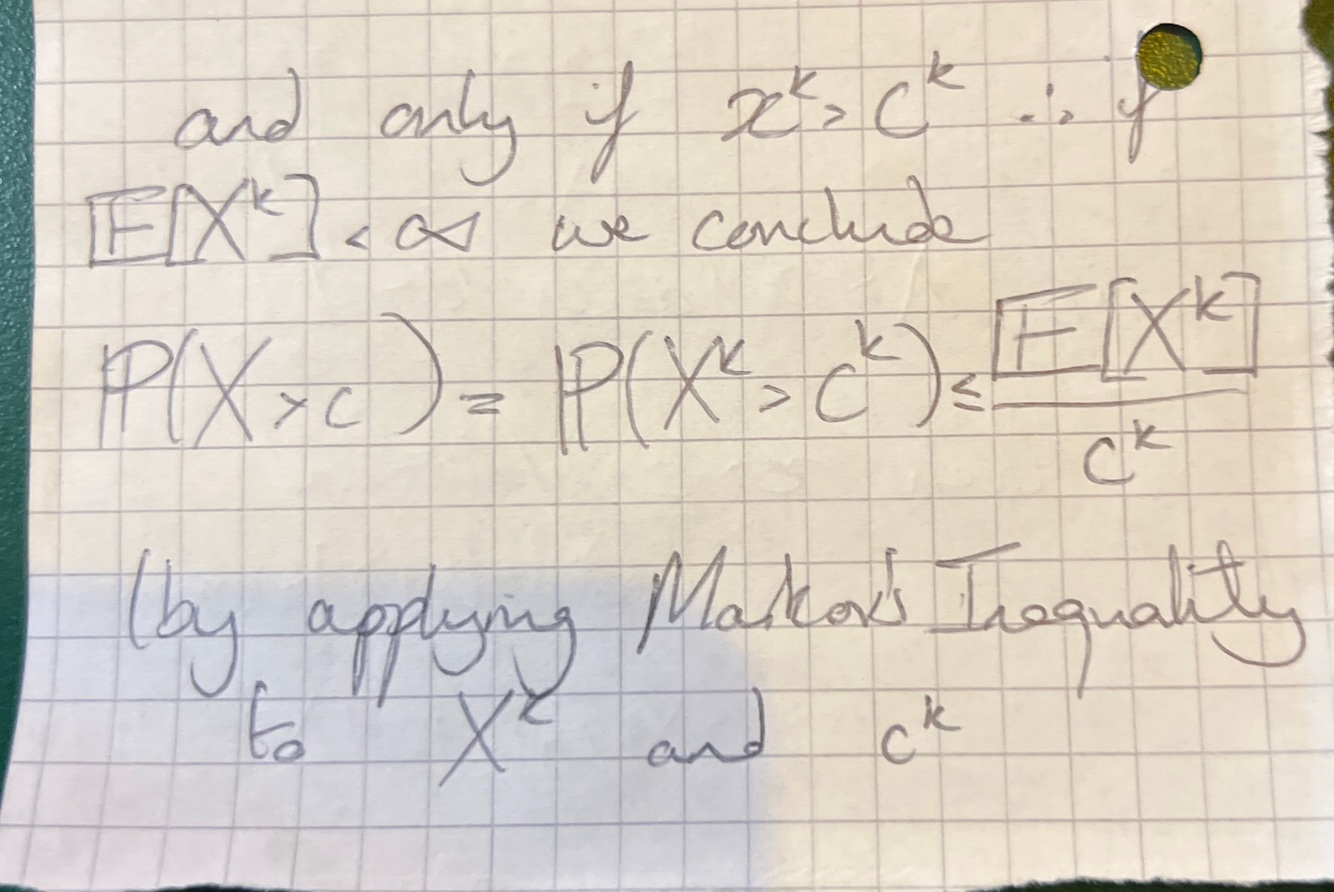 and only if x^k > c^k ∴ if
𝔼[X^k] < ∞ we conclude
ℙ(X > c) = ℙ(X^k > c^k) ≤ 𝔼[X^k] / c^k
(by applying Markov's Inequality
to X^k and c^k